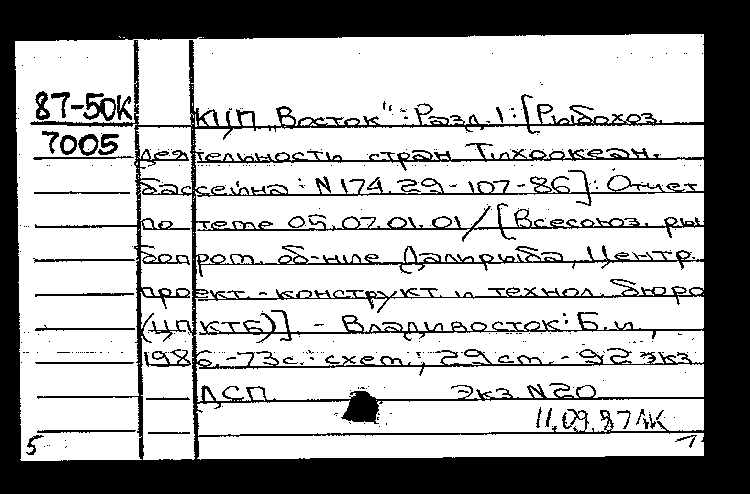 87-50К КЦП „Восток“: Разд. 1: [Рыбохоз.
7005 деятельность стран Тихоокеан.
бассейна: N 174.29-107-86]: Отчет
по теме 05.07.01.01 / [Всесоюз. ры
бопром. об-ние Дальрыба, Центр.
проект.-конструкт. и технол. бюро
(ЦПКТБ)]. - Владивосток: Б.и.,
1986. - 73 с.: схем.; 29 см. - 92 экз.
ДСП Экз. N 20
11.09.87
5